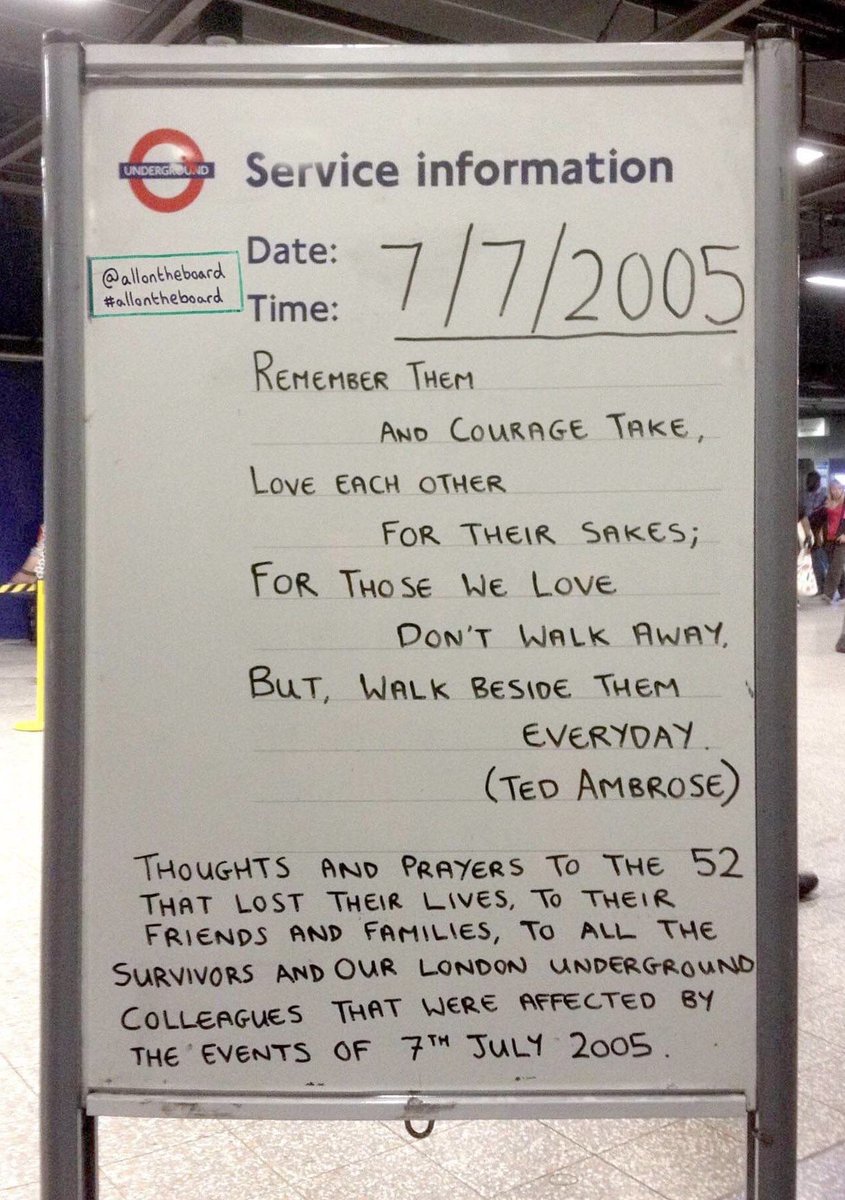 UNDERGROUND
Service information
@allontheboard
#allontheboard
Date: 7/7/2005
Time:
REMEMBER THEM
AND COURAGE TAKE,
LOVE EACH OTHER
FOR THEIR SAKES;
FOR THOSE WE LOVE
DON'T WALK AWAY,
BUT, WALK BESIDE THEM
EVERYDAY.
(TED AMBROSE)
THOUGHTS AND PRAYERS TO THE 52
THAT LOST THEIR LIVES, TO THEIR
FRIENDS AND FAMILIES, TO ALL THE
SURVIVORS AND OUR LONDON UNDERGROUND
COLLEAGUES THAT WERE AFFECTED BY
THE EVENTS OF 7TH JULY 2005.